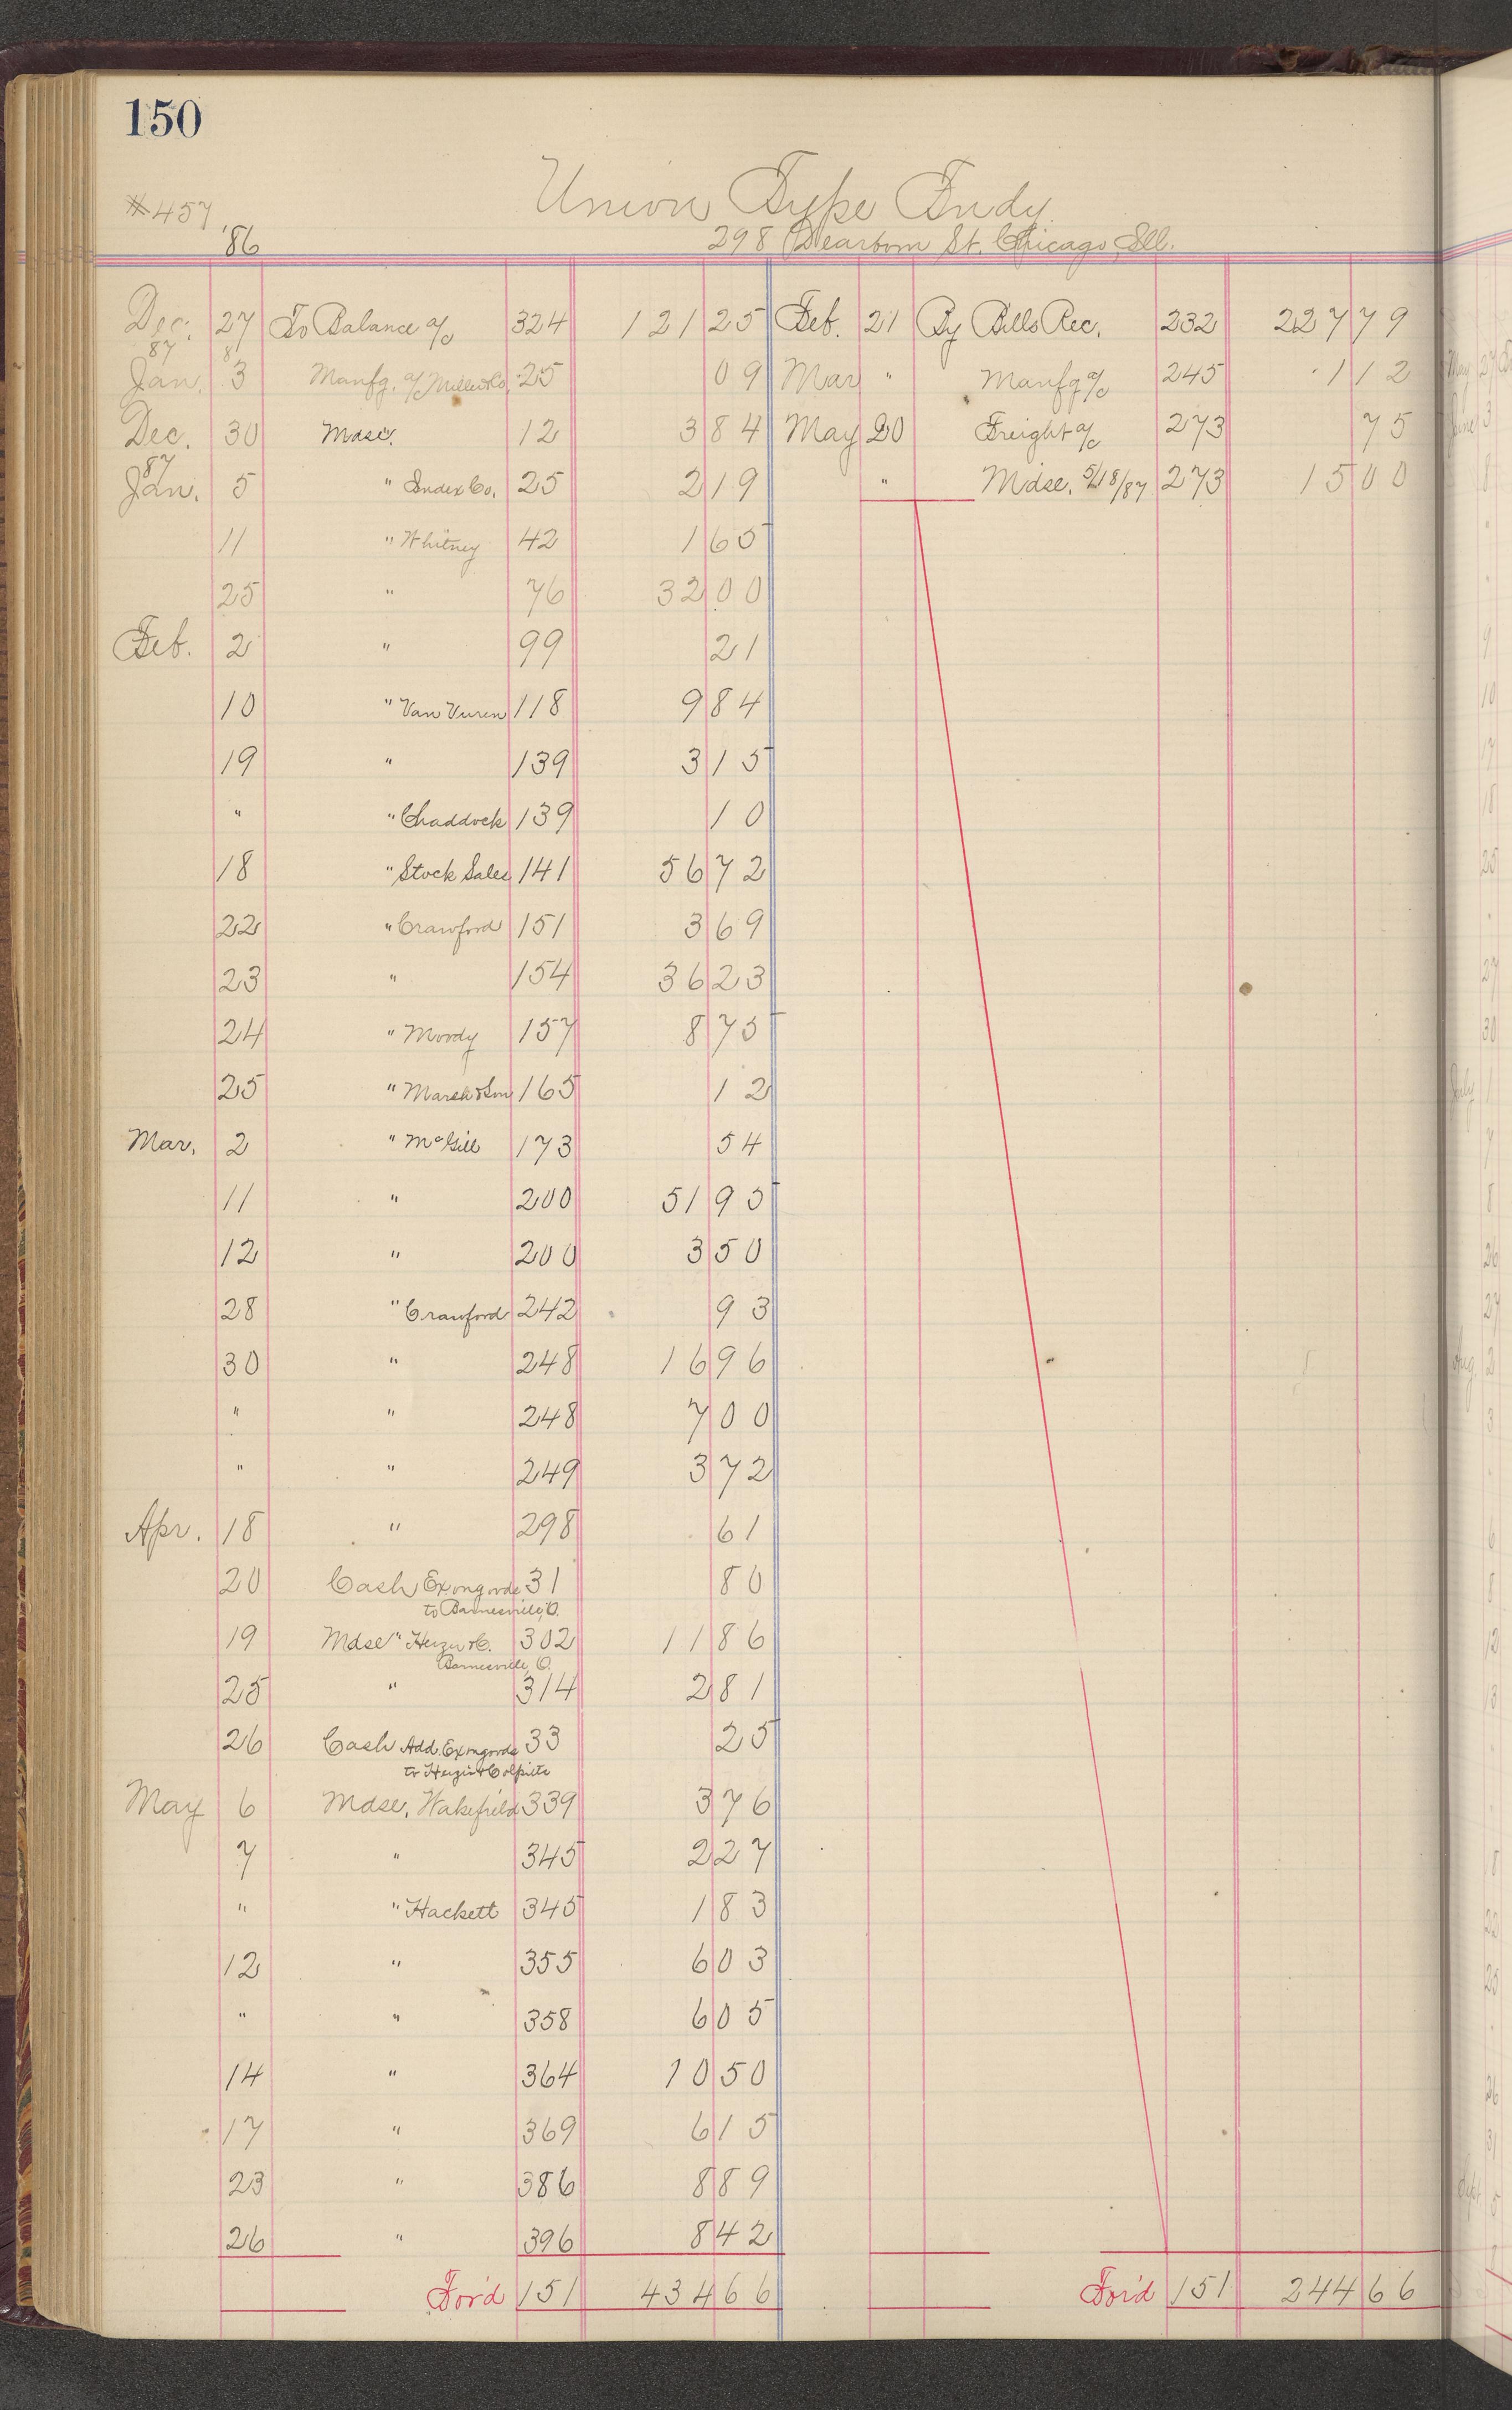 150
Union Type Fndy.
#457
'86
298 Dearborn St. Chicago, Ill.
Dec. 27 To Balance a/c 324 121 25 Feb. 21 By Bills Rec. 232 227 79
87
Jan. 3 Manfg. a/c Miller & Co. 25 09 Mar " Manfg a/c 245 1 12
Dec. 30 Mdse. 12 3 84 May 20 Freight a/c 273 75
87
Jan. 5 " Index Co. 25 2 19 " Mdse. 5/18/87 273 15 00
11 " Whitney 42 1 65
25 " 76 32 00
Feb. 2 " 99 21
10 " Van Vuren 118 9 84
19 " 139 3 15
" " Chaddock 139 10
18 " Stock Sales 141 56 72
22 " Crawford 151 3 69
23 " 154 36 23
24 " Moody 157 8 75
25 " Marsh & Son 165 12
Mar. 2 " McGill 173 54
11 " 200 51 95
12 " 200 3 50
28 " Crawford 242 93
30 " 248 16 96
" " 248 7 00
" " 249 3 72
Apr. 18 " 298 61
20 Cash Ex on goods 31 80
to Barnesville, O.
19 Mdse " 302 11 86
Barnesville, O.
25 " 314 2 81
26 Cash Add. Ex on goods 33 25
to
May 6 Mdse. Wakefield 339 3 76
7 " 345 2 27
" " Hackett 345 1 83
12 " 355 6 03
" " 358 6 05
14 " 364 10 50
17 " 369 6 15
23 " 386 8 89
26 " 396 8 42
For'd 151 434 66 For'd 151 244 66